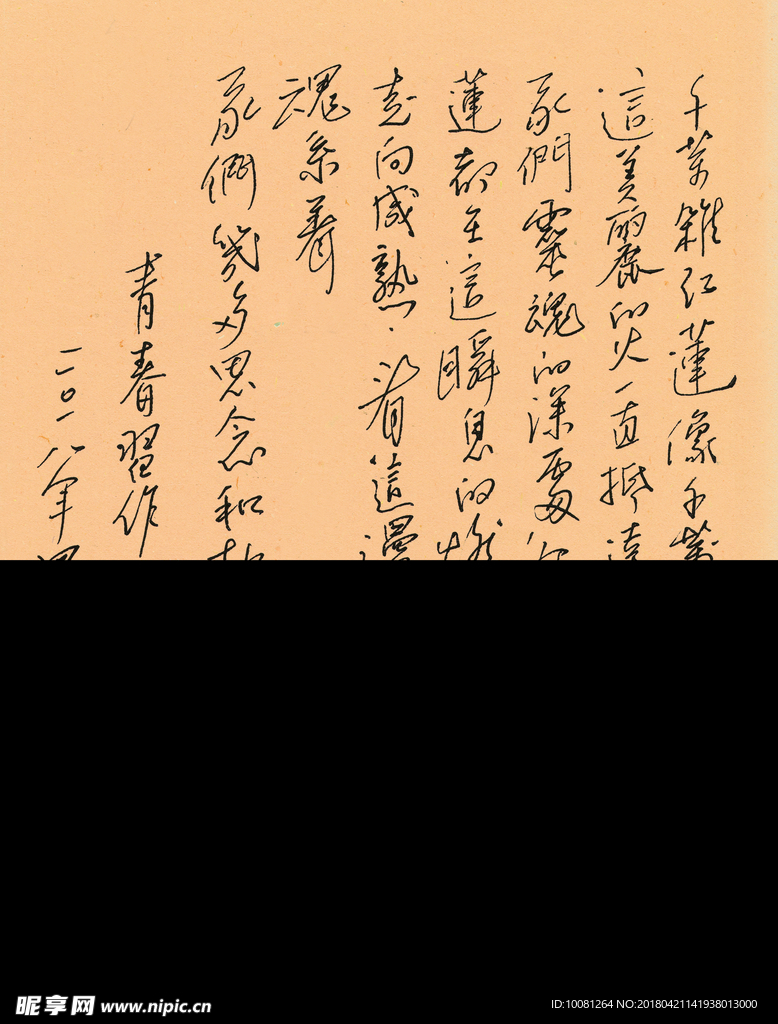 千萬雜紅蓮像千萬
這美麗的火一直抵達
我們靈魂的深處
蓮都在這瞬息的燃
走向成熟,沒有這漫
魂系着
我們幾多思念和
青春習作
二〇一八年四
昵享网 www.nipic.cn
ID:10081264 NO:20180421141938013000